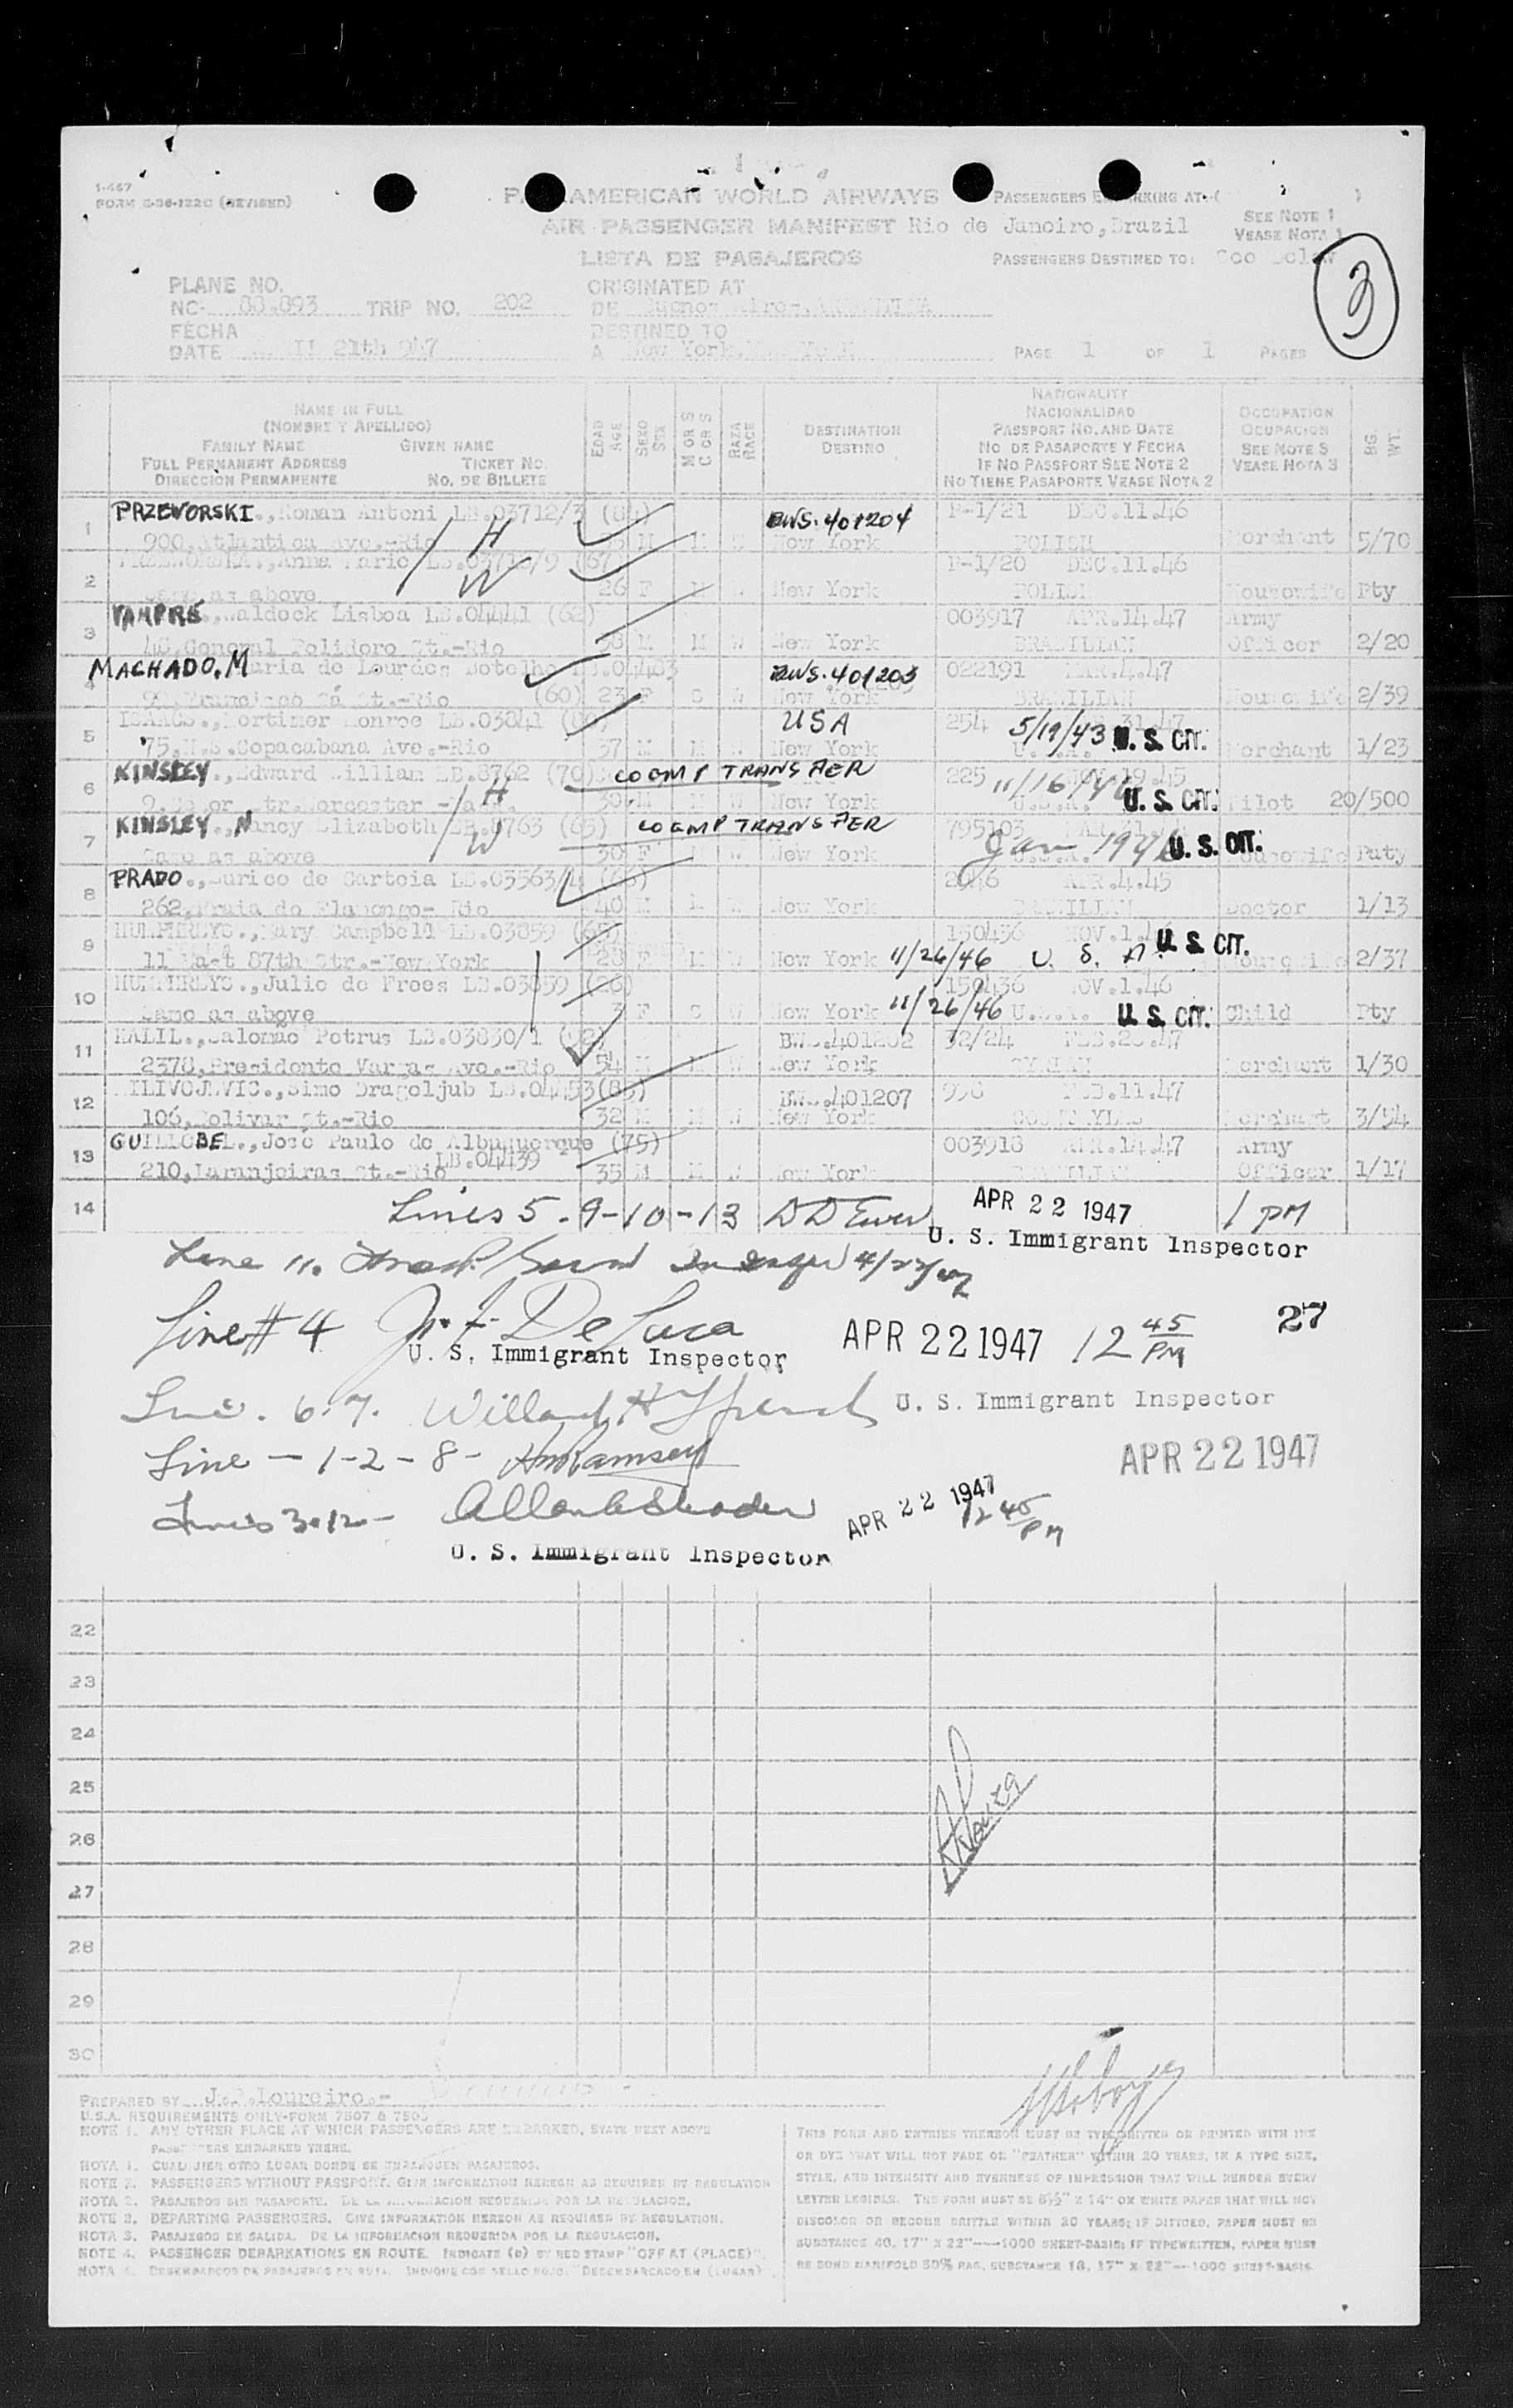 I-467
FORM (REVISED)
AMERICAN WORLD AIRWAYS PASSENGERS EMBARKING AT: ( )
AIR PASSENGER MANIFEST Rio de Janeiro, Brazil SEE NOTE 1
VEASE NOTA 1
LISTA DE PASAJEROS PASSENGERS DESTINED TO:
3
PLANE NO. ORIGINATED AT
NC- 88.893 TRIP NO. 202 DE
FECHA DESTINED TO
DATE 21th 947 A New York, PAGE 1 OF 1 PAGES
NAME IN FULL
(NOMBRE Y APELLIDO)
FAMILY NAME GIVEN NAME
FULL PERMANENT ADDRESS TICKET NO.
DIRECCION PERMANENTE NO. DE BILLETE
EDAD AGE
SEXO SEX
M OR S C OR S
RAZA RACE
DESTINATION
DESTINO
NATIONALITY
NACIONALIDAD
PASSPORT NO. AND DATE
NO DE PASAPORTE Y FECHA
IF NO PASSPORT SEE NOTE 2
NO TIENE PASAPORTE VEASE NOTA 2
OCCUPATION
OCUPACION
SEE NOTE 3
VEASE NOTA 3
BG. WT.
1 PRZEWORSKI., Roman Antoni LB.03712/3 BWS.401204 P-1/21 DEC.11.46
900, Atlantica Ave.-Rio H M M New York POLISH Merchant 5/70
2 Anna Marie (67 P-1/20 DEC.11.46
Same as above W 26 F New York POLISH Housewife Pty
3 VAMPRE., Waldeck Lisboa LB.04441 (62) 003917 APR.14.47 Army
48, General Polidoro St.-Rio 38 M M W New York BRAZILIAN Officer 2/20
4 MACHADO. M Maria de Lourdes Botelho BWS.401203 022191 MAR.4.47
Francisco Sá St.-Rio (60) 23 F S W New York BRAZILIAN Housewife 2/39
5 ISAACS., Mortimer Monroe LB.03841 USA 254 5/19/43 U. S. CIT.
75, N.S.Copacabana Ave.-Rio 37 M M W New York Merchant 1/23
6 KINSLEY., Edward William LB.8762 (70) CO EMP TRANSFER 225 11/16/46 U. S. CIT.
H 30 M M W New York Pilot 20/500
7 KINSLEY N., Nancy Elizabeth LB.8763 (65) CO EMP TRANSFER 795103 U. S. CIT.
Same as above W 30 F New York Jan 1946 Housewife Puty
8 PRADO., Eurico de LB.03563/4 APR.4.45
262, Praia do Flamengo- Rio 40 M New York BRAZILIAN Doctor 1/13
9 HUMPHREYS., Mary Campbell LB.03859 150436 NOV.1. U. S. CIT.
11 East 87th Str.-New York 28 F M W New York 11/26/46 U. S. A. Housewife 2/37
10 HUMPHREYS., Julie de Frees LB.03859 (26) 150436 NOV.1.46
Same as above 3 F S W New York 11/26/46 U.S.A. U. S. CIT. Child Pty
11 Salomao Petrus LB.03830/1 BWS.401202 32/24 FEB.26.47
2378, Presidente Vargas Ave.-Rio 54 M M W New York Merchant 1/30
12 MILIVOJEVIC., Simo Dragoljub LB.04453 (85) BWS.401207 998 FEB.11.47
106, Bolivar St.-Rio 32 M M W New York Merchant 3/54
13 GUILLOBEL., José Paulo de Albuquerque (75) 003918 APR.14.47 Army
LB.04439
210, Laranjeiras St.-Rio 35 M M W New York BRAZILIAN Officer 1/17
14 Lines 5-9-10-13 APR 22 1947 1 PM
U. S. Immigrant Inspector
Line 11.
Line # 4 De Luca APR 22 1947 12 45 PM 27
U. S. Immigrant Inspector
6.7. Willard H U. S. Immigrant Inspector
Line - 1-2-8- Ramsey APR 22 1947
Lines 3-12- APR 22 1947 12 45 PM
U. S. Immigrant Inspector
22
23
24
25
26
27
28
29
30
PREPARED BY J. Loureiro.-
U.S.A. REQUIREMENTS ONLY-FORM 7507 &
NOTE 1. ANY OTHER PLACE AT WHICH PASSENGERS ARE EMBARKED, STATE NEXT ABOVE
PASSENGERS EMBARKED THERE.
NOTA 1. CUALQUIER OTRO LUGAR DONDE SE EMBARQUEN PASAJEROS.
NOTE 2. PASSENGERS WITHOUT PASSPORT. GIVE INFORMATION HEREON AS REQUIRED BY REGULATION
NOTA 2. PASAJEROS SIN PASAPORTE. DE LA INFORMACION REQUERIDA POR LA REGULACION.
NOTE 3. DEPARTING PASSENGERS. GIVE INFORMATION HEREON AS REQUIRED BY REGULATION.
NOTA 3. PASAJEROS DE SALIDA. DE LA INFORMACION REQUERIDA POR LA REGULACION.
NOTE 4. PASSENGER DEBARKATIONS EN ROUTE. INDICATE (D) BY RED STAMP "OFF AT (PLACE)".
NOTA 4. DESEMBARCOS DE PASAJEROS EN RUTA. INDIQUE CON SELLO ROJO. "DESEMBARCADO EN (LUGAR)".
THIS FORM AND ENTRIES THEREON MUST BE TYPEWRITTEN OR PRINTED WITH INK
OR DYE THAT WILL NOT FADE OR "FEATHER" WITHIN 20 YEARS, IN A TYPE SIZE,
STYLE, AND INTENSITY AND EVENNESS OF IMPRESSION THAT WILL RENDER EVERY
LETTER LEGIBLE. THE FORM MUST BE 8½" X 14" ON WHITE PAPER THAT WILL NOT
DISCOLOR OR BECOME BRITTLE WITHIN 20 YEARS; IF DITTOED, PAPER MUST BE
SUBSTANCE 40, 17" X 22"—1000 SHEET-BASIS; IF TYPEWRITTEN, PAPER MUST
BE BOND MANIFOLD 50% RAG, SUBSTANCE 18, 17" X 22"—1000 SHEET-BASIS.